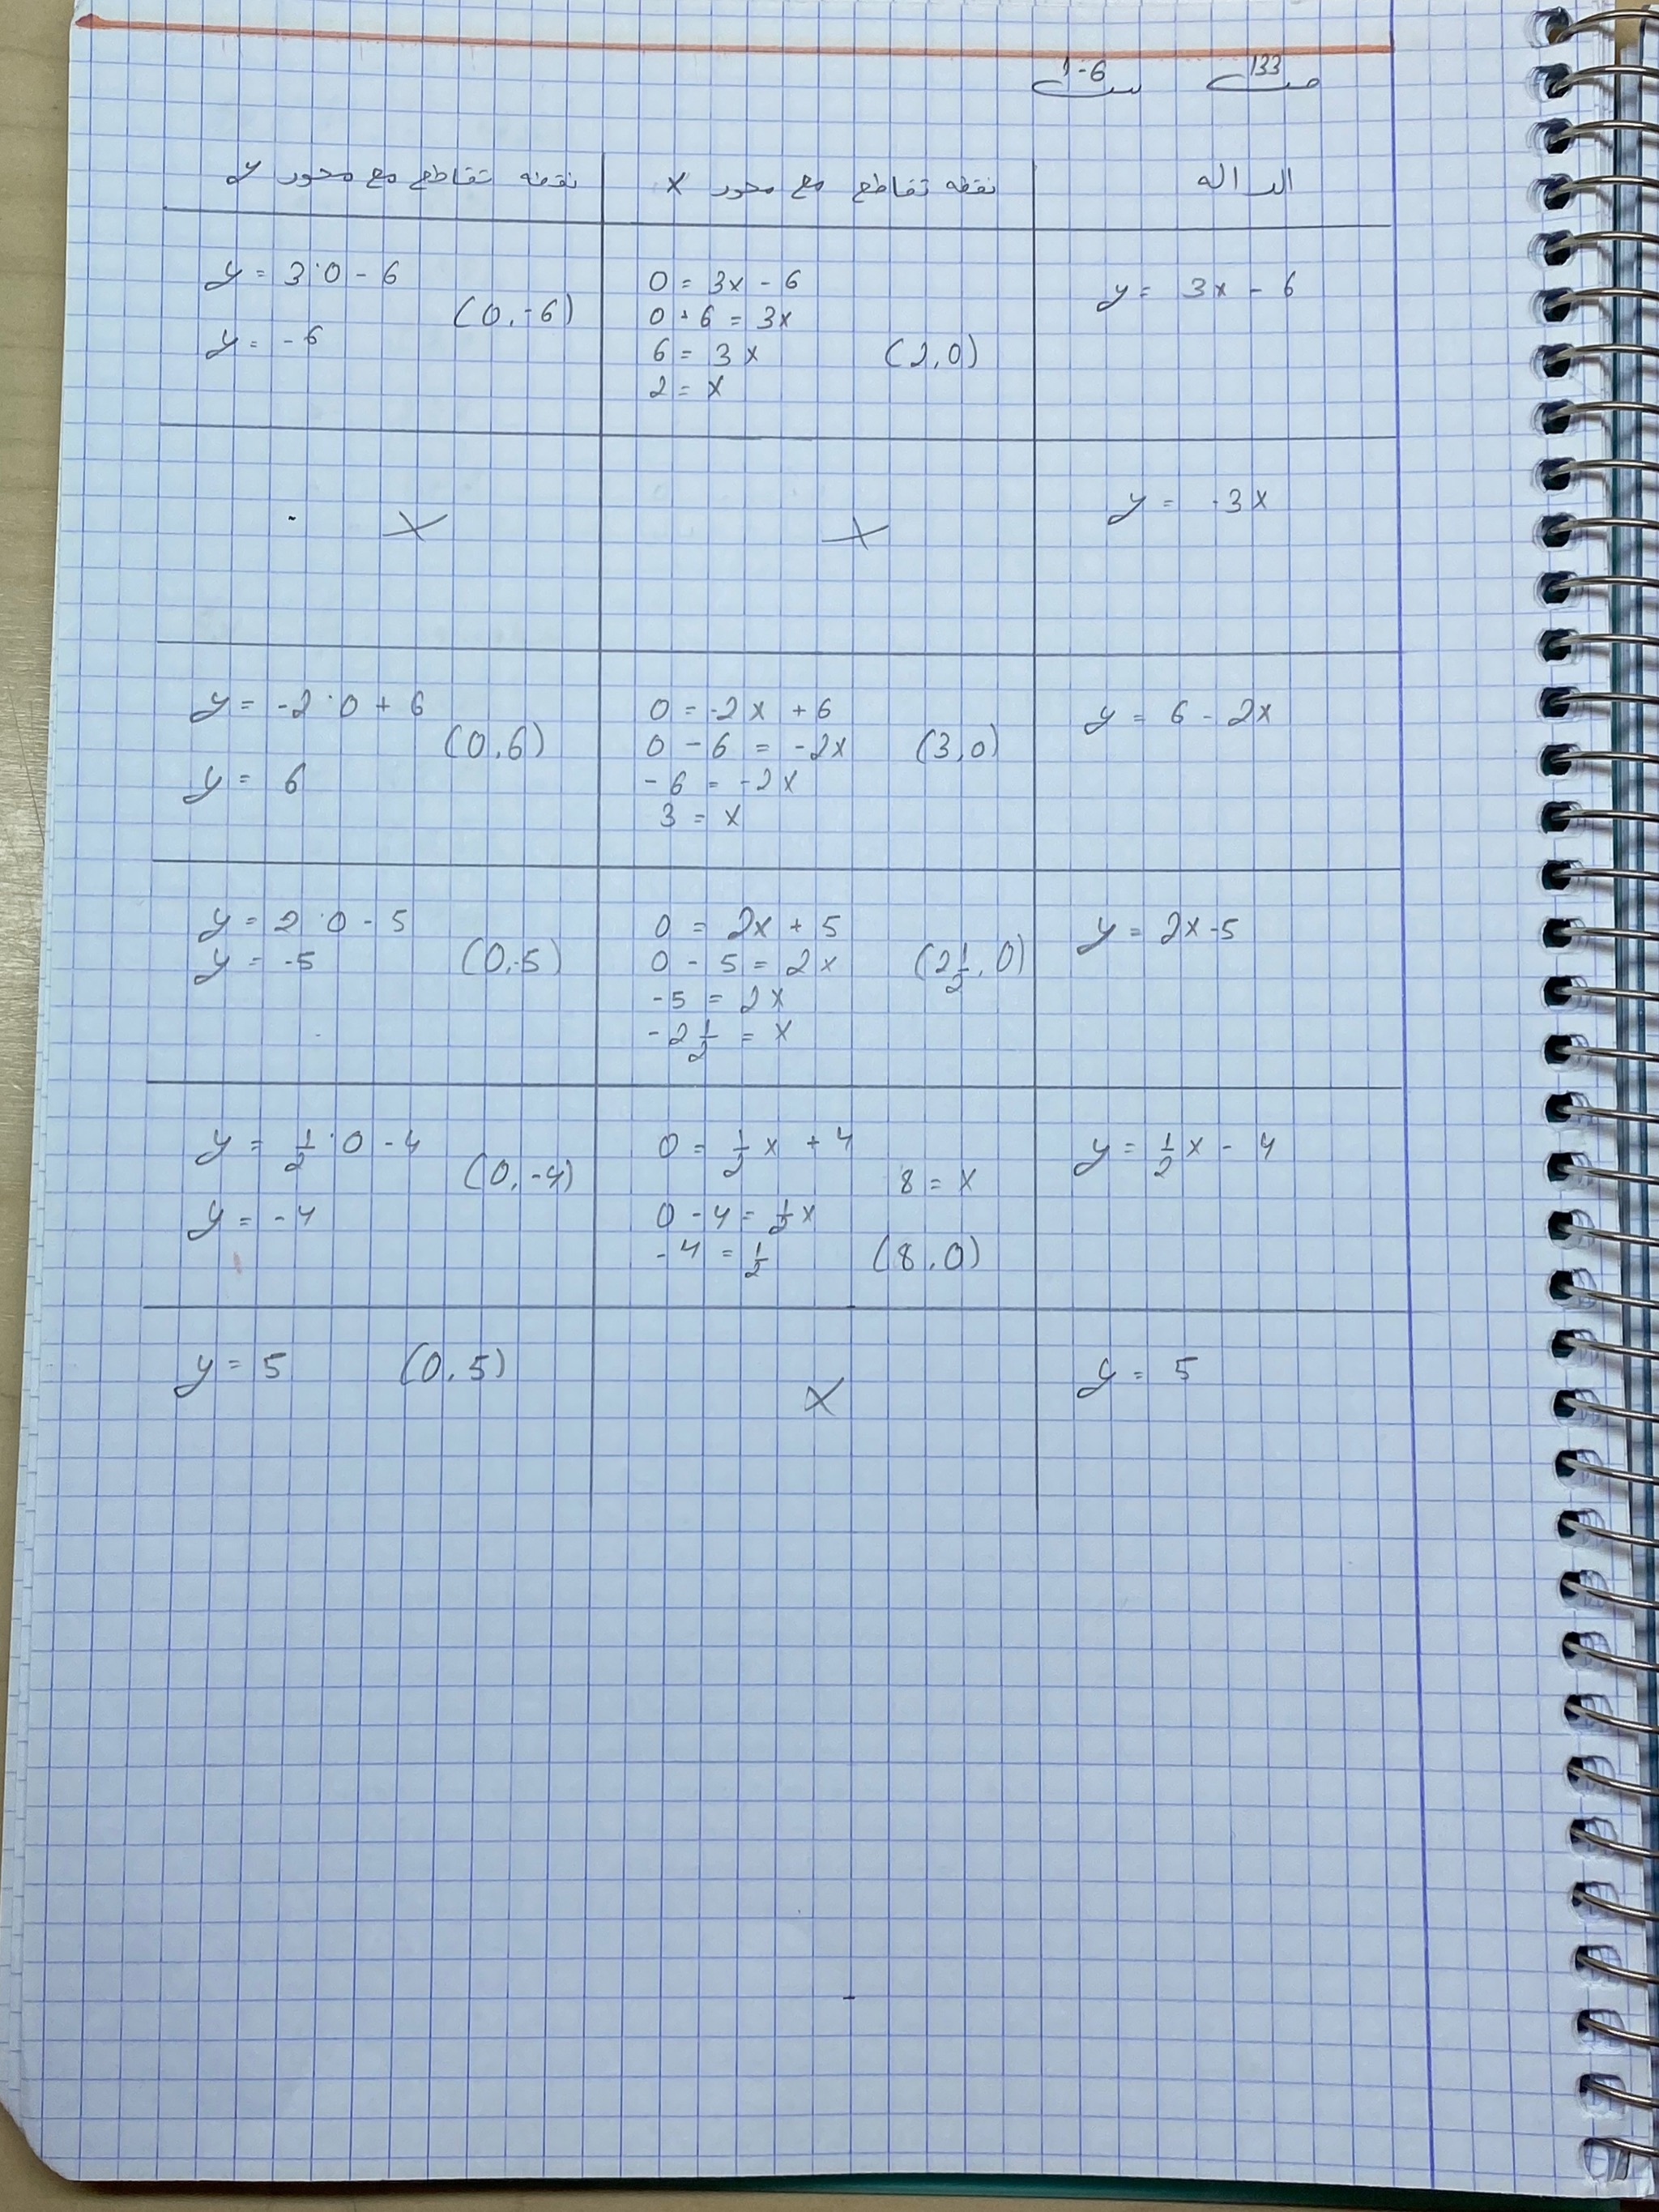 ص 133 س 1-6
الدالة
نقطة تقاطع مع محور x
نقطة تقاطع مع محور y
y = 3x - 6
0 = 3x - 6
0 + 6 = 3x
6 = 3x (2,0)
2 = x
y = 3·0 - 6
(0,-6)
y = -6
y = -3x
X
X
y = 6 - 2x
0 = -2x + 6
0 - 6 = -2x (3,0)
-6 = -2x
3 = x
y = -2·0 + 6
(0,6)
y = 6
y = 2x-5
0 = 2x + 5
0 - 5 = 2x (2½,0)
-5 = 2x
-2½ = x
y = 2·0 - 5
y = -5 (0,-5)
y = ½x - 4
0 = ½x + 4
8 = x
0 - 4 = ½x
-4 = ½ (8,0)
y = ½·0 - 4
(0,-4)
y = -4
y = 5
X
y = 5 (0,5)